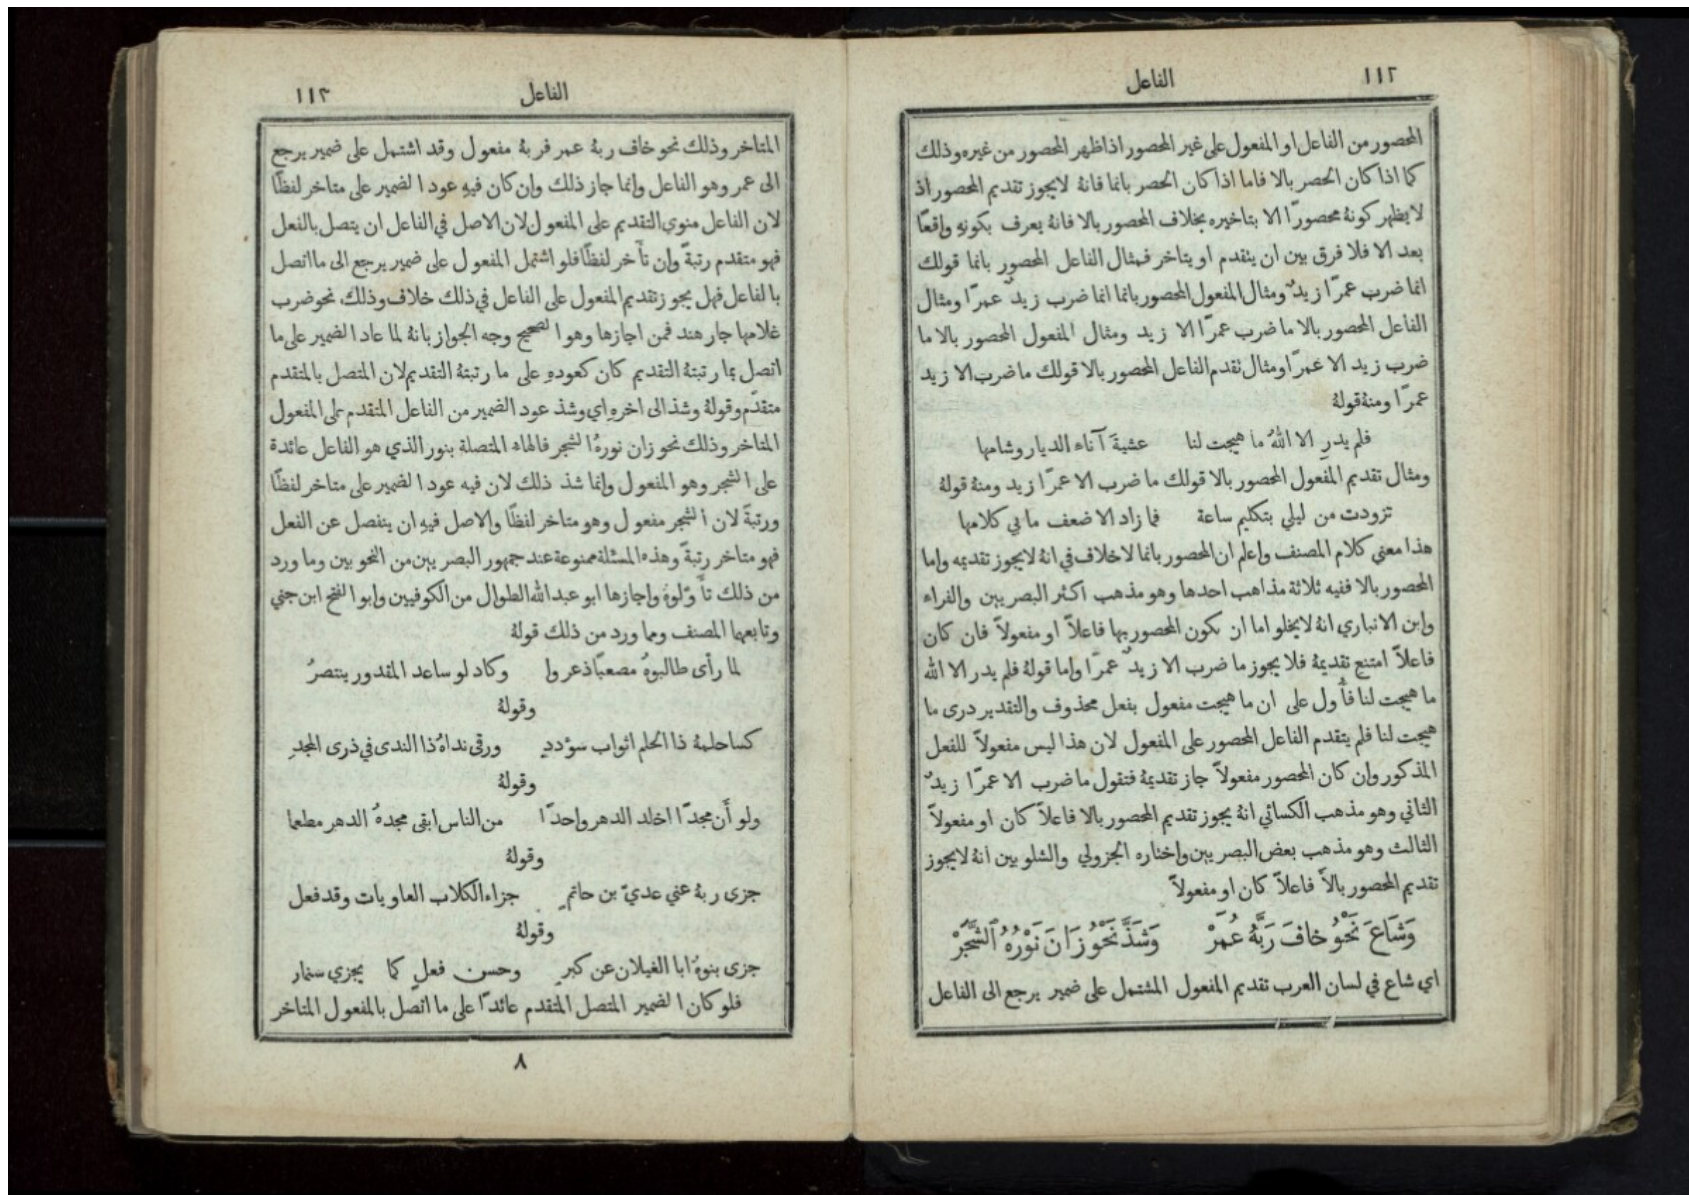 ١١٢
الفاعل
المحصور من الفاعل او المفعول على غير المحصور اذا ظهر المحصور من غيره وذلك
كما اذا كان الحصر بالا فاما اذا كان الحصر بانما فانهُ لا يجوز تقديم المحصور اذ
لا يظهر كونهُ محصورًا الا بتاخيره بخلاف المحصور بالا فانهُ يعرف بكونهِ واقعًا
بعد الا فلا فرق بين ان يتقدم او يتاخر فمثال الفاعل المحصور بانما قولك
انما ضرب عمرًا زيدٌ ومثال المفعول المحصور بانما انما ضرب زيدٌ عمرًا ومثال
الفاعل المحصور بالا ما ضرب عمرًا الا زيد ومثال المفعول المحصور بالا ما
ضرب زيد الا عمرًا ومثال تقدم الفاعل المحصور بالا قولك ما ضرب الا زيد
عمرًا ومنهُ قولهُ
فلم يدرِ الا اللهُ ما هيجت لنا عشيةَ آناء الديار وشامها
ومثال تقديم المفعول المحصور بالا قولك ما ضرب الا عمرًا زيد ومنهُ قولهُ
تزودت من ليلي بتكليم ساعة فما زاد الا ضعف ما بي كلامها
هذا معنى كلام المصنف واعلم ان المحصور بانما لا خلاف في انهُ لا يجوز تقديمه واما
المحصور بالا ففيه ثلاثة مذاهب احدها وهو مذهب اكثر البصريين والفراء
وابن الانباري انهُ لا يخلو اما ان يكون المحصور بها فاعلاً او مفعولاً فان كان
فاعلاً امتنع تقديمهُ فلا يجوز ما ضرب الا زيدٌ عمرًا واما قولهُ فلم يدر الا الله
ما هيجت لنا فأُول على ان ما هيجت مفعول بفعل محذوف والتقدير درى ما
هيجت لنا فلم يتقدم الفاعل المحصور على المفعول لان هذا ليس مفعولاً للفعل
المذكور وان كان المحصور مفعولاً جاز تقديمهُ فتقول ما ضرب الا عمرًا زيدٌ
الثاني وهو مذهب الكسائي انهُ يجوز تقديم المحصور بالا فاعلاً كان او مفعولاً
الثالث وهو مذهب بعض البصريين واختاره الجزولي والشلوبين انهُ لا يجوز
تقديم المحصور بالاّ فاعلاً كان او مفعولاً
وَشَاعَ نَحْوُ خافَ رَبَّهُ عُمَرْ وَشَذَّ نَحْوُ زَانَ نَوْرُهُ ٱلشَّجَرْ
اي شاع في لسان العرب تقديم المفعول المشتمل على ضمير يرجع الى الفاعل
الفاعل
١١٣
المتاخر وذلك نحو خاف ربهُ عمر فربهُ مفعول وقد اشتمل على ضمير يرجع
الى عمر وهو الفاعل وانما جاز ذلك وان كان فيهِ عود الضمير على متاخر لفظًا
لان الفاعل منوي التقديم على المفعول لان الاصل في الفاعل ان يتصل بالفعل
فهو متقدم رتبةً وان تأَخر لفظًا فلو اشتمل المفعول على ضمير يرجع الى ما اتصل
بالفاعل فهل يجوز تقديم المفعول على الفاعل في ذلك خلاف وذلك نحو ضرب
غلامها جار هند فمن اجازها وهو الصحيح وجه الجواز بانهُ لما عاد الضمير على ما
اتصل بما رتبتهُ التقديم كان كعودهِ على ما رتبتهُ التقديم لان المتصل بالمتقدم
متقدّم وقولهُ وشذ الى اخرهِ اي وشذ عود الضمير من الفاعل المتقدم على المفعول
المتاخر وذلك نحو زان نورهُ الشجر فالهاء المتصلة بنور الذي هو الفاعل عائدة
على الشجر وهو المفعول وانما شذ ذلك لان فيه عود الضمير على متاخر لفظًا
ورتبةً لان الشجر مفعول وهو متاخر لفظًا والاصل فيهِ ان ينفصل عن الفعل
فهو متاخر رتبةً وهذه المسئلة ممنوعة عند جمهور البصريين من النحويين وما ورد
من ذلك تأَوَّلوهُ واجازها ابو عبد الله الطوال من الكوفيين وابو الفتح ابن جني
وتابعهما المصنف ومما ورد من ذلك قولهُ
لما رأى طالبوهُ مصعبًا ذعروا وكاد لو ساعد المقدور ينتصرُ
وقولهُ
كسا حلمهُ ذا الحلم اثواب سؤددٍ ورقى نداهُ ذا الندى في ذرى المجدِ
وقولهُ
ولو أَن مجدًا اخلد الدهر واحدًا من الناس ابقى مجدهُ الدهر مطعما
وقولهُ
جزى ربهُ عني عديّ بن حاتمٍ جزاء الكلاب العاويات وقد فعل
وقولهُ
جزى بنوهُ ابا الغيلان عن كبرٍ وحسن فعلٍ كما يجزي سنمار
فلو كان الضمير المتصل المتقدم عائدًا على ما اتصل بالمفعول المتاخر
٨